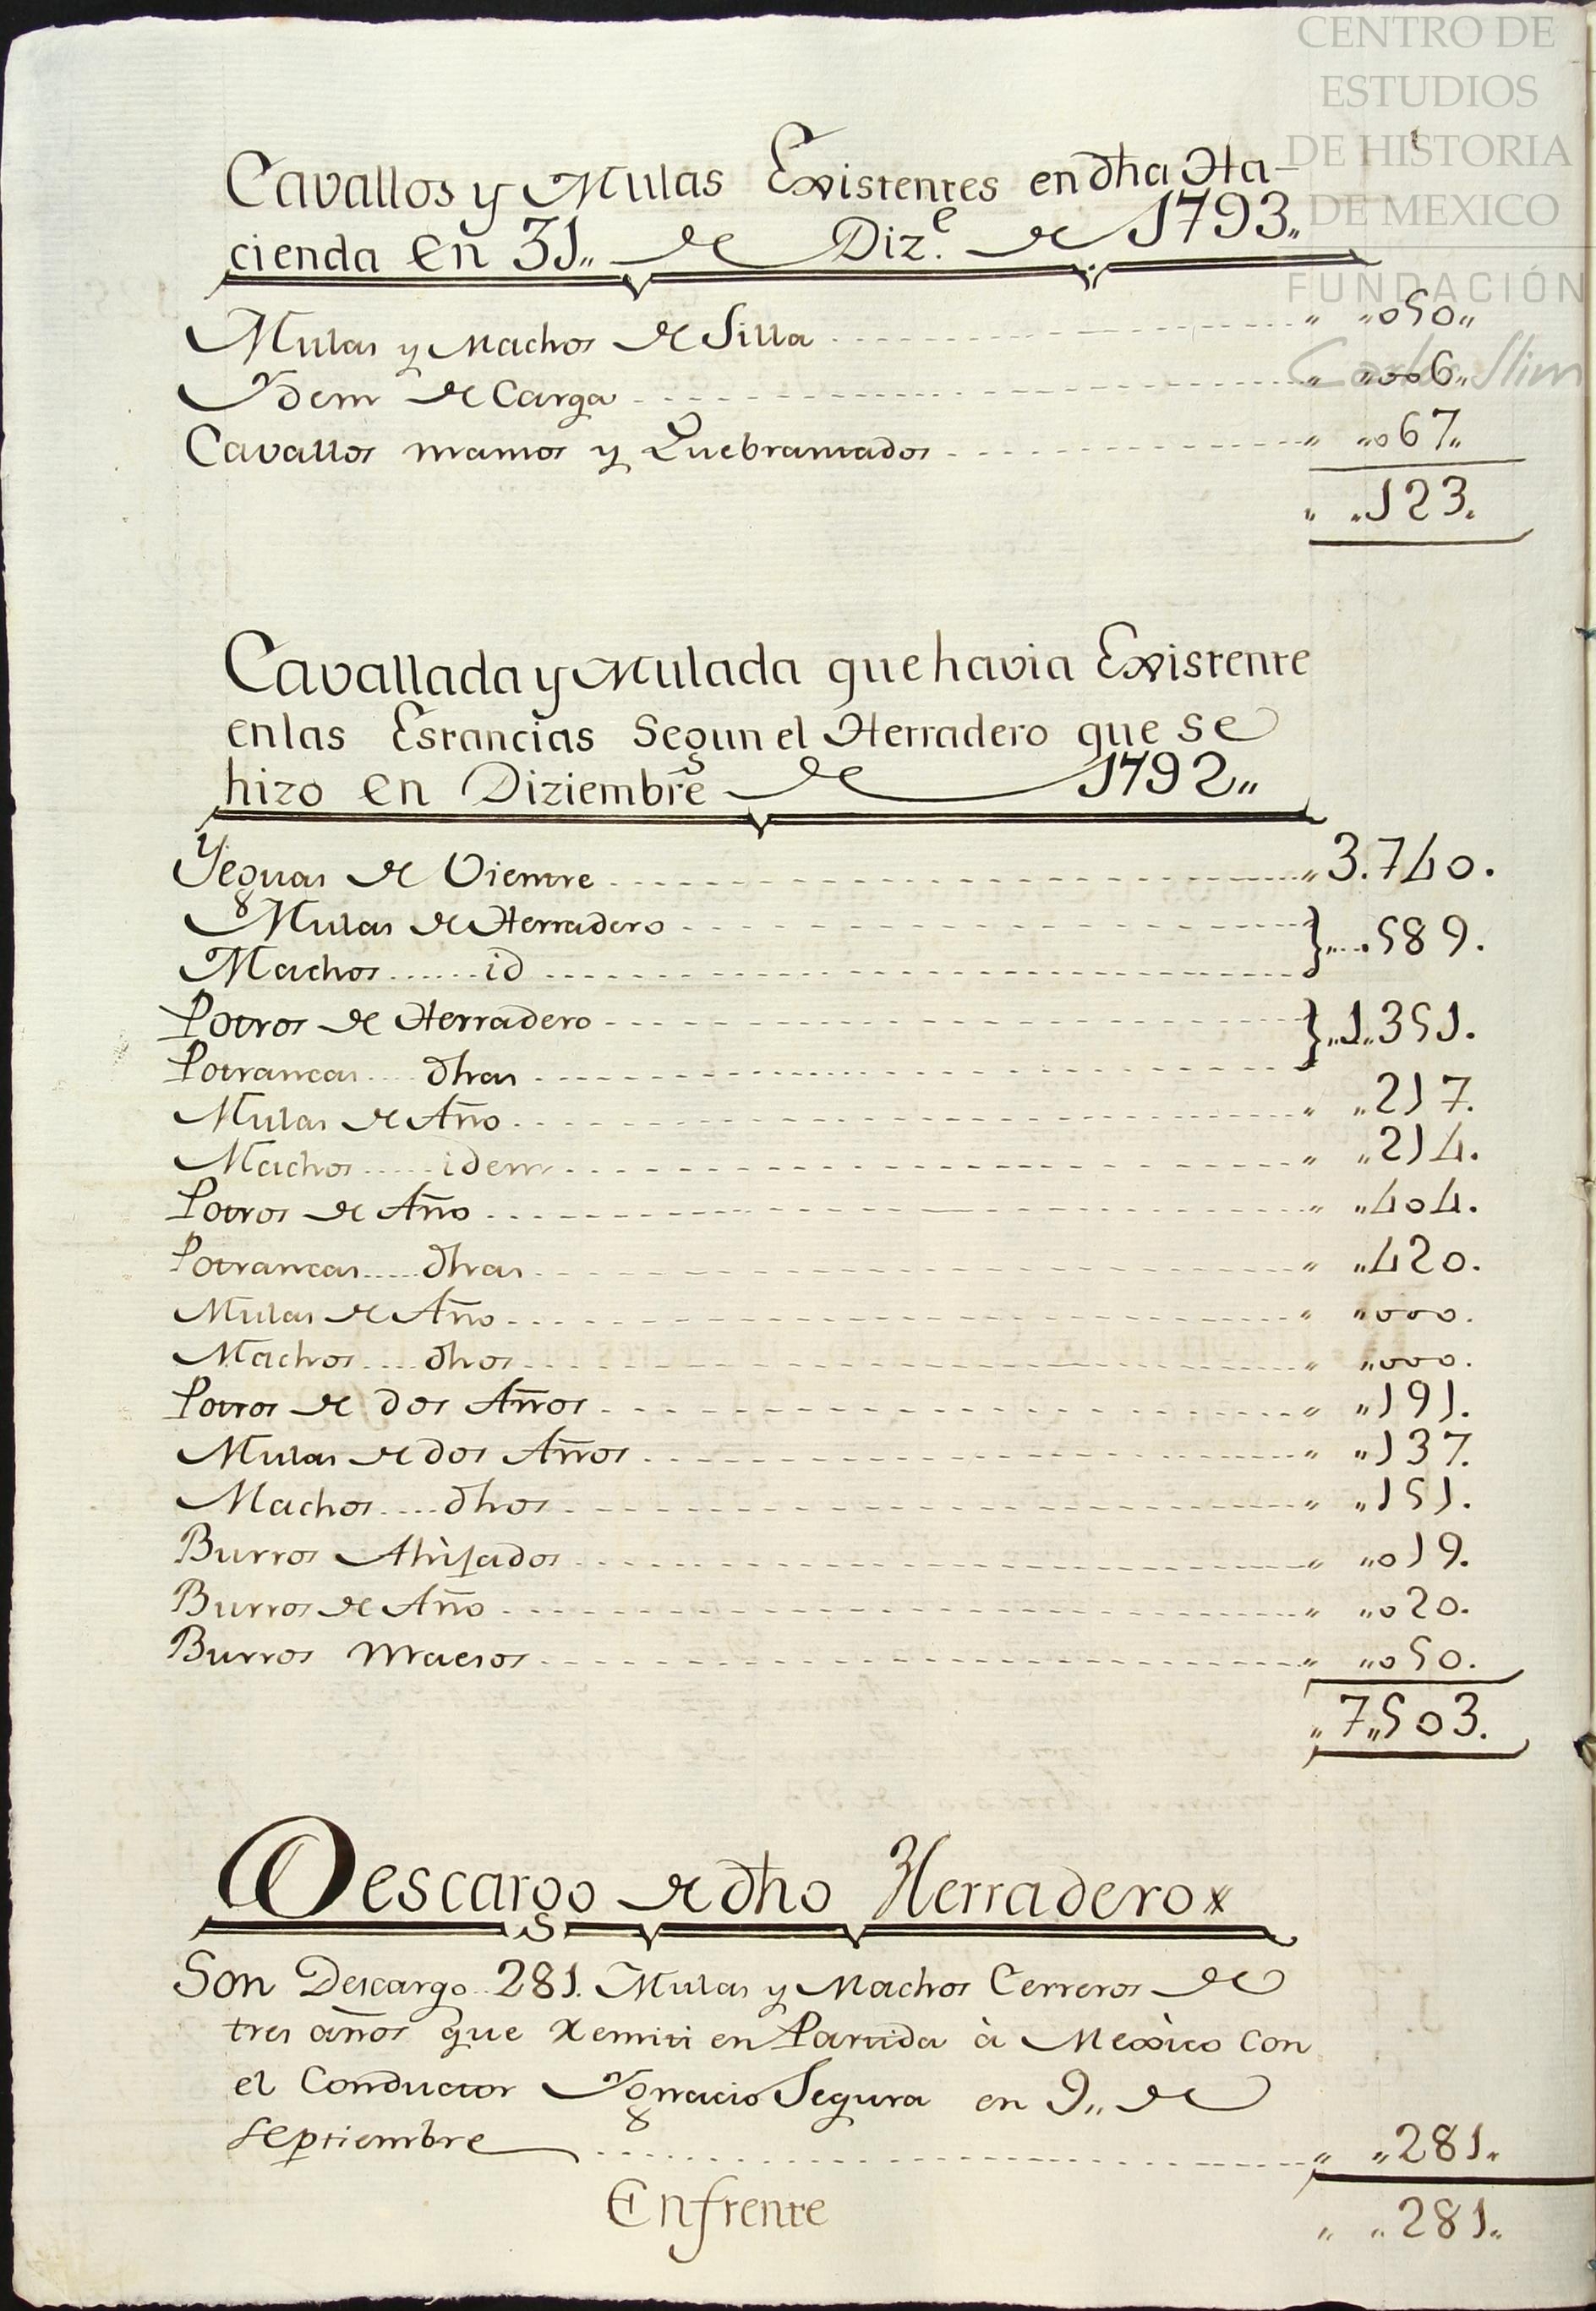 CENTRO DE
ESTUDIOS
DE HISTORIA
DE MEXICO
FUNDACIÓN
Carlos Slim
Cavallos y Mulas Existentes en dha Ha-
cienda en 31,, de Diz.e de 1793,,
Mulas y Machos de Silla ,, ,,050,,
Ydem de Carga ,, ,,006,,
Cavallos mansos y Quebrantados ,, ,,067,,
,, ,,123.
Cavallada y Mulada que havia Existente
en las Estancias Segun el Herradero que se
hizo en Diziembre de 1792,,
Yeguas de Vientre ,,3.740.
Mulas de Herradero
Machos id } ,,589.
Potros de Herradero
Potrancas dhas } ,,1,,351.
Mulas de Año ,, ,,217.
Machos idem ,, ,,214.
Potros de Año ,, ,,404.
Potrancas dhas ,, ,,420.
Mulas de Año ,, ,,000.
Machos dhos ,, ,,000.
Potros de dos Años ,, ,,191.
Mulas de dos Años ,, ,,137.
Machos dhos ,, ,,151.
Burros Ahijados ,, ,,019.
Burros de Año ,, ,,020.
Burros Maesos ,, ,,050.
,,7,,503.
Descargo de dho Herradero
Son Descargo 281. Mulas y Machos Cerreros de
tres años que remiti en Partida à Mexico con
el Conductor Ygnacio Segura en 9,, de
septiembre ,, ,,281,,
Enfrente ,, ,,281,,